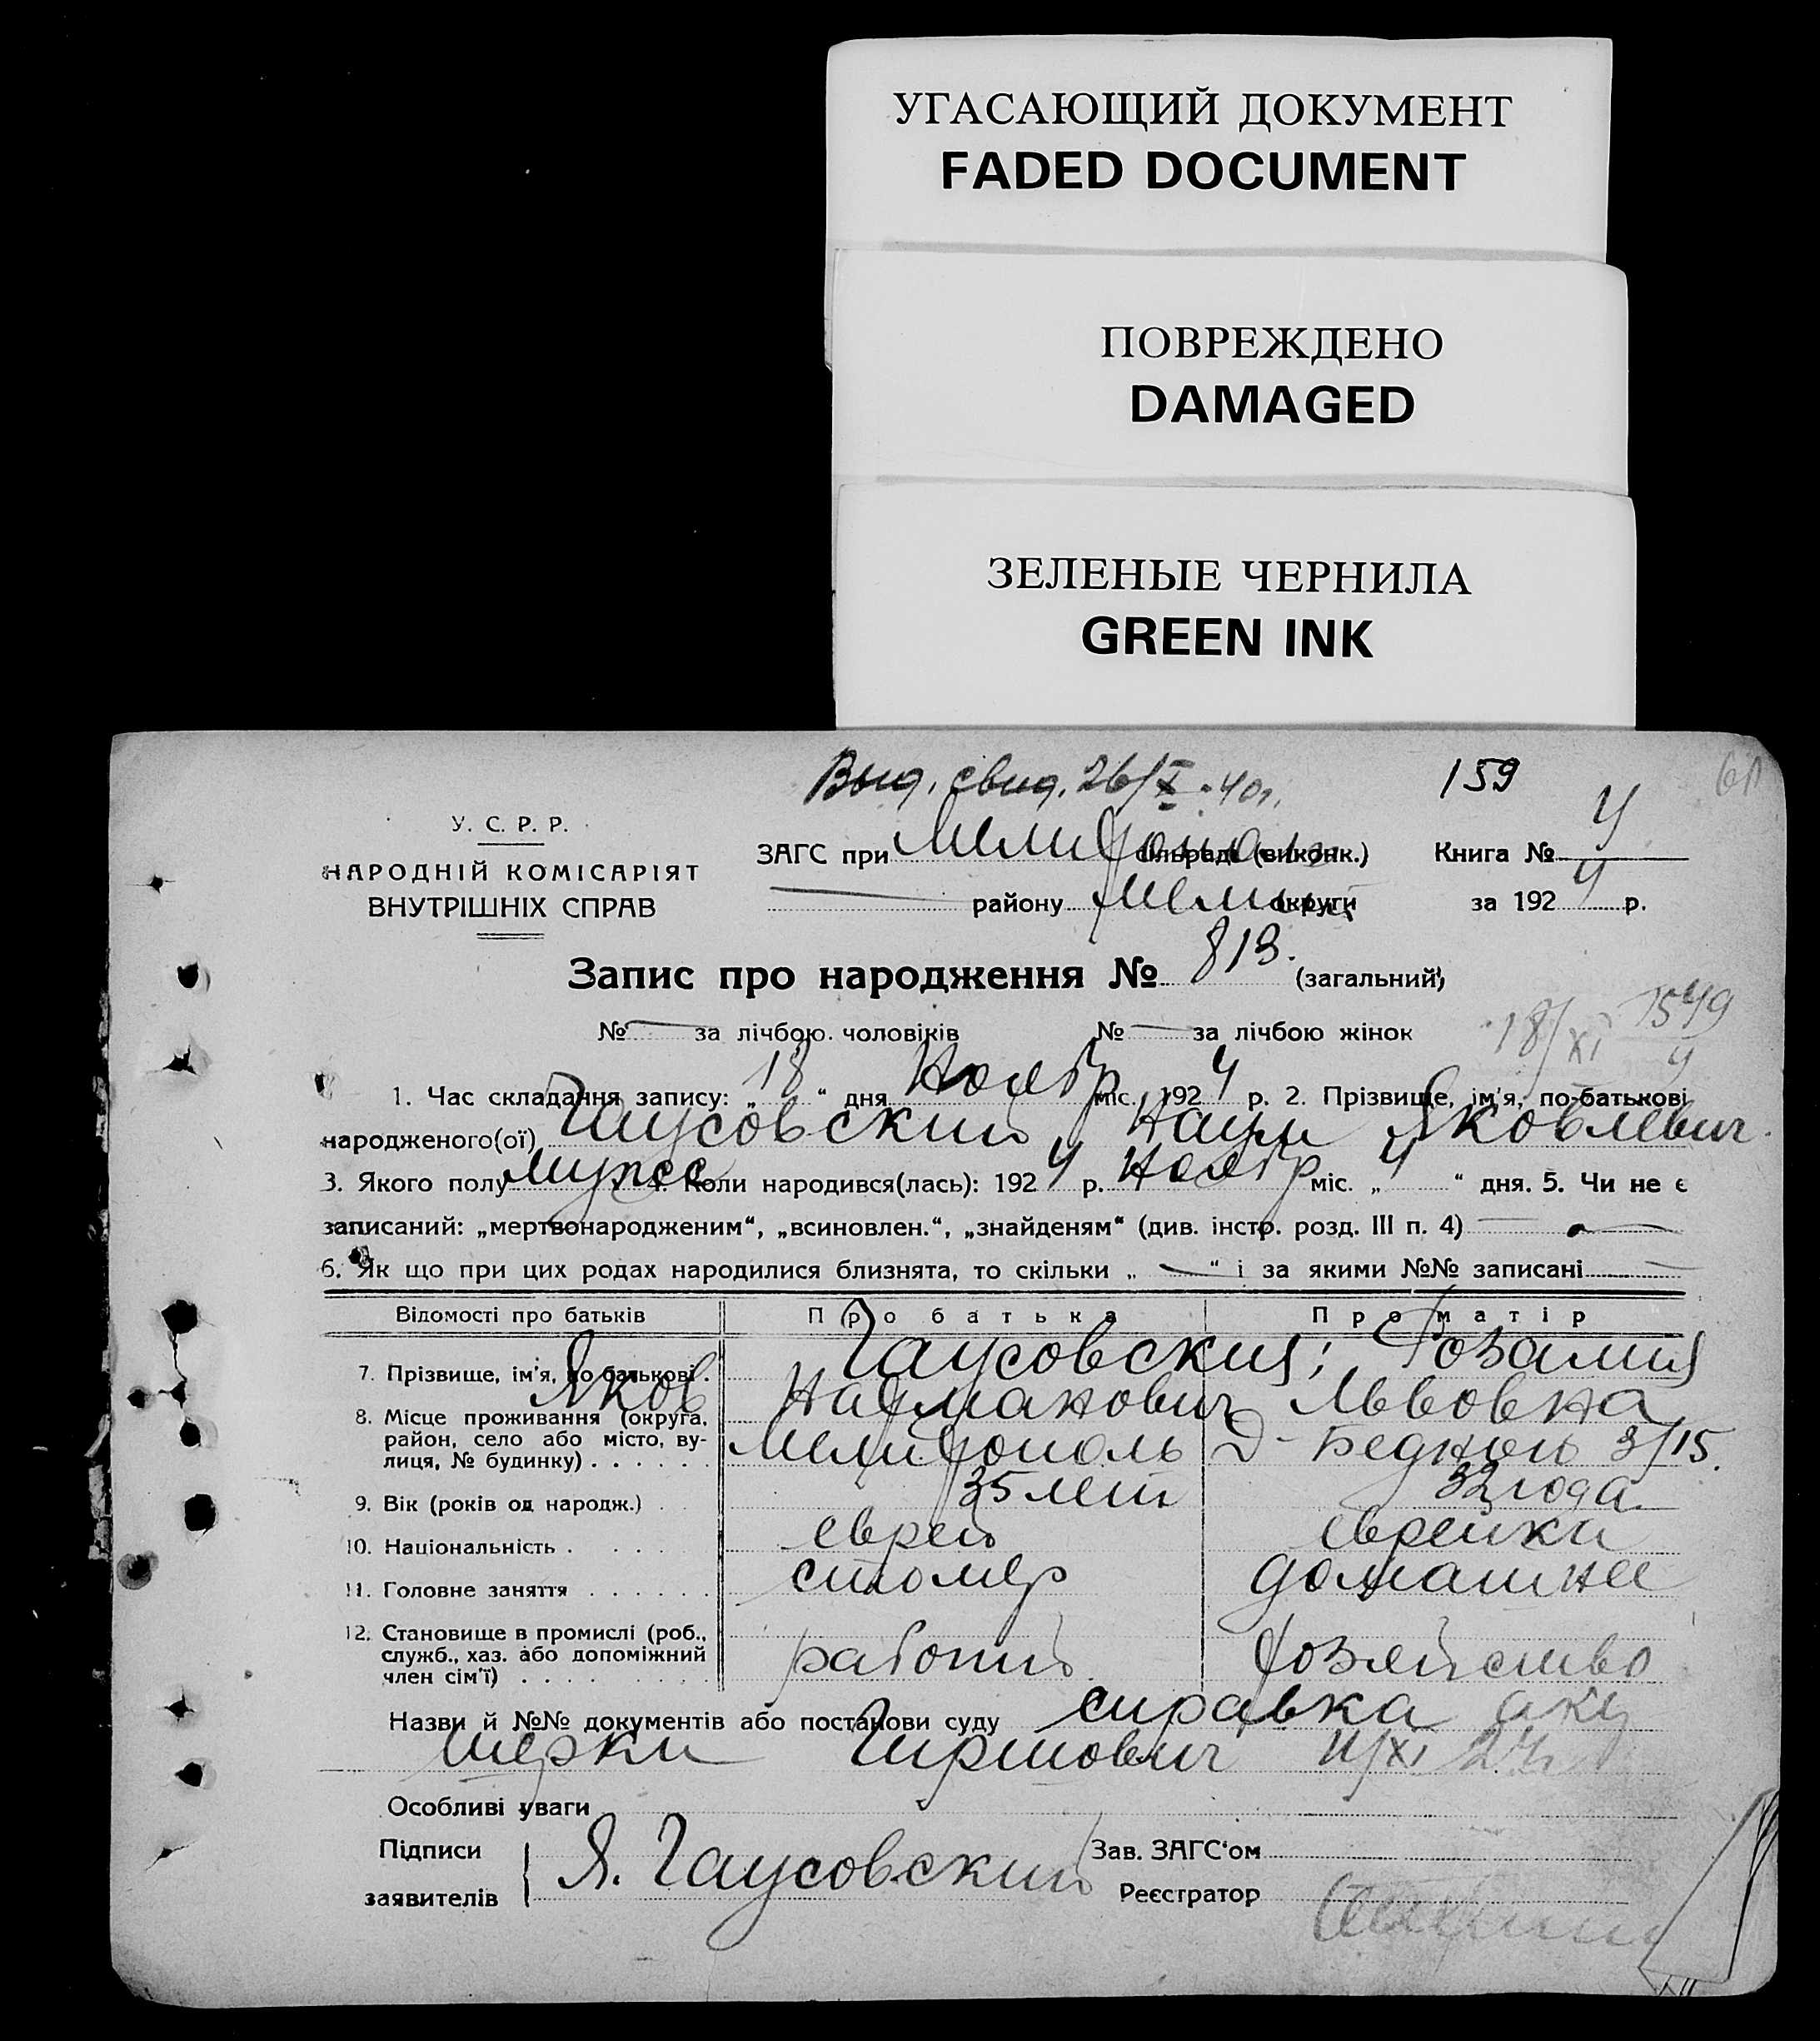 УГАСАЮЩИЙ ДОКУМЕНТ
FADED DOCUMENT
ПОВРЕЖДЕНО
DAMAGED
ЗЕЛЕНЫЕ ЧЕРНИЛА
GREEN INK
Выд. свид. 26/X 40г. 159
У. С. Р. Р.
НАРОДНІЙ КОМІСАРІЯТ
ВНУТРІШНІХ СПРАВ
ЗАГС при сільраді (виконк.) Книга № 4
района округи за 1924 р.
Запис про народження № 813. (загальний)
№ за лічбою чоловіків № за лічбою жінок 18/XI 1549
1. Час складання запису: „18“ дня Ноябр міс. 1924 р. 2. Прізвище, ім'я, по-батькові
народженого(ої) Гаусовский Наум Яковлевич
3. Якого полу мужск 4. Коли народився(лась): 1924 р. Ноябр міс. „4“ дня. 5. Чи не є
записаний: „мертвонародженим“, „всиновлен.“, „знайденям“ (див. інстр. розд. III п. 4)
6. Як що при цих родах народилися близнята, то скільки „ “ і за якими №№ записані
Відомості про батьків Про батька Про матір
7. Прізвище, ім'я, по батькові . Гаусовския; Розалия
Яков Наумович Львовна
8. Місце проживання (округа,
район, село або місто, ву-
лиця, № будинку) . . . . . . Мелитополь Д-Бедного 3/15.
9. Вік (років од народж.) . 35 лет 32 года
10. Національність . . . . еврей еврейка
11. Головне заняття . . . . . . столяр домашнее
12. Становище в промислі (роб.,
служб., хаз. або допоміжний
член сім'ї) . . . . рабочий хозяйство
Назви й №№ документів або постанови суду справка аку
шерки Гиршович 11/XI 24г
Особливі уваги
Підписи
заявителів Я. Гаусовский
Зав. ЗАГС'ом
Реєстратор